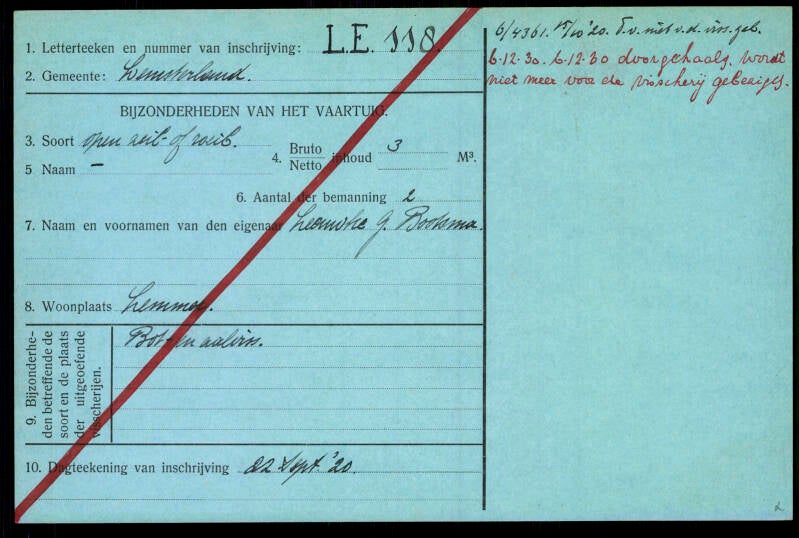 1. Letterteeken en nummer van inschrijving: L.E. 118.
2. Gemeente: Lemsterland.
BIJZONDERHEDEN VAN HET VAARTUIG.
3. Soort open zeil- of roeib.
4. Bruto Netto inhoud 3 M³.
5 Naam —
6. Aantal der bemanning 2
7. Naam en voornamen van den eigenaar G. Bootsma.
8. Woonplaats Lemmer.
9. Bijzonderhe-
den betreffende de
soort en de plaats
der uitgeoefende
visscherijen.
Bot- en aalviss.
10. Dagteekening van inschrijving 22 Sept. '20.
6/4361. 15/10 '20. T.v. niet v.d. viss. geb.
6.12.30. 6.12.30 doorgehaald, wordt
niet meer voor de visscherij gebezigd.